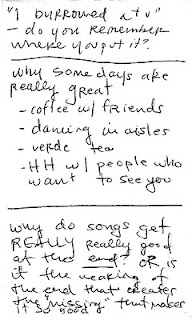 "I burrowed at v"
- do you remember
where you put it?.
why some days are
really great
- coffee w/ friends
- dancing in aisles
- verde tea
- HH w/ people who
want to see you
why do songs get
REALLY really good
at the end? OR is
it the nearing of
the end that creates
the "missing" that makes
it so good?